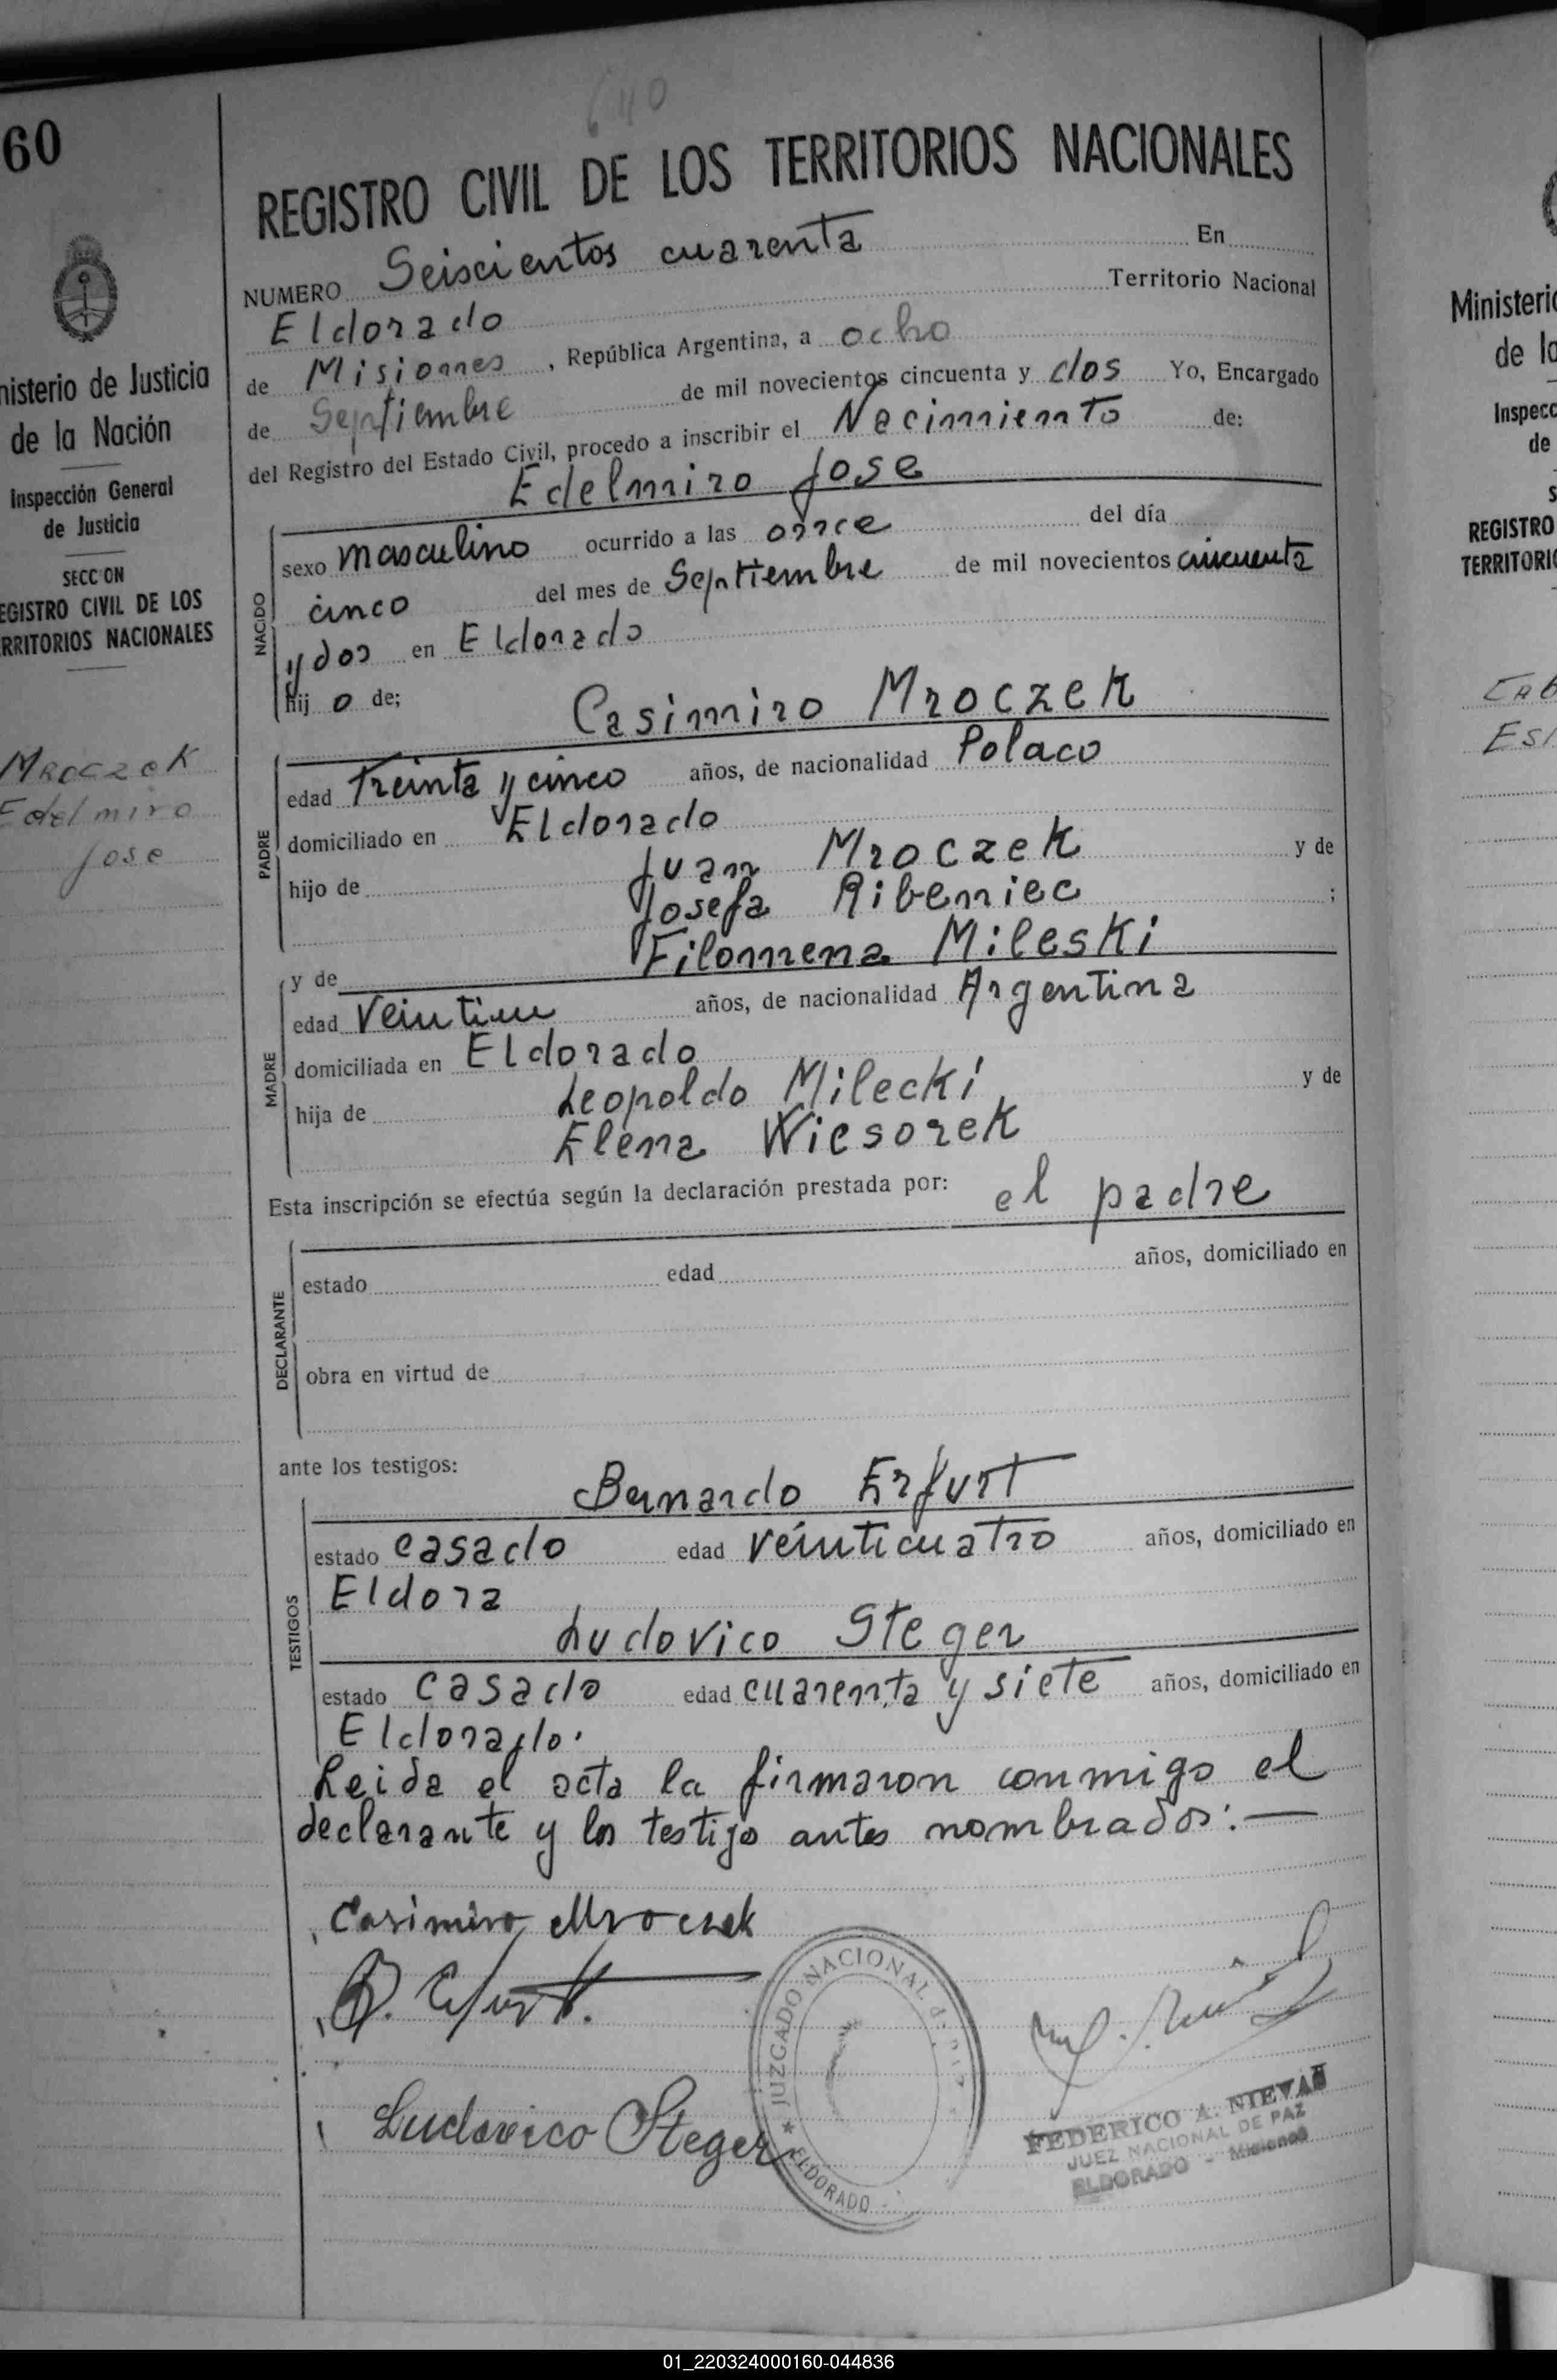 640
60
REGISTRO CIVIL DE LOS TERRITORIOS NACIONALES
NUMERO Seiscientos cuarenta En
Eldorado Territorio Nacional
de Misiones, República Argentina, a ocho
de Septiembre de mil novecientos cincuenta y dos Yo, Encargado
del Registro del Estado Civil, procedo a inscribir el Nacimiento de:
Edelmiro Jose
NACIDO
sexo masculino ocurrido a las once del día
cinco del mes de Septiembre de mil novecientos cincuenta
y dos en Eldorado
hijo de;
Casimiro Mroczek
PADRE
edad Treinta y cinco años, de nacionalidad Polaco
domiciliado en Eldorado
hijo de Juan Mroczek y de
Josefa Ribeniec ;
y de Filomena Mileski
MADRE
edad Veintiun años, de nacionalidad Argentina
domiciliada en Eldorado
hija de Leopoldo Milecki y de
Elena Wiesorek
Esta inscripción se efectúa según la declaración prestada por: el padre
DECLARANTE
estado edad años, domiciliado en
obra en virtud de
ante los testigos:
Bernardo Erfurt
TESTIGOS
estado casado edad veinticuatro años, domiciliado en
Eldora
Ludovico Steger
estado casado edad cuarenta y siete años, domiciliado en
Eldorado.
Leida el acta la firmaron conmigo el
declarante y los testigo antes nombrados:—
Casimiro Mroczek
B. Erfurt.
Ludovico Steger
JUZGADO NACIONAL de PAZ
★ ELDORADO -
FEDERICO A. NIEVAS
JUEZ NACIONAL DE PAZ
ELDORADO - Misiones
nisterio de Justicia
de la Nación
Inspección General
de Justicia
SECCION
EGISTRO CIVIL DE LOS
RRITORIOS NACIONALES
Mroczek
Edelmiro
Jose
Ministerio
de la
Inspecc
de
S
REGISTRO
TERRITORIO
Est
01_220324000160-044836